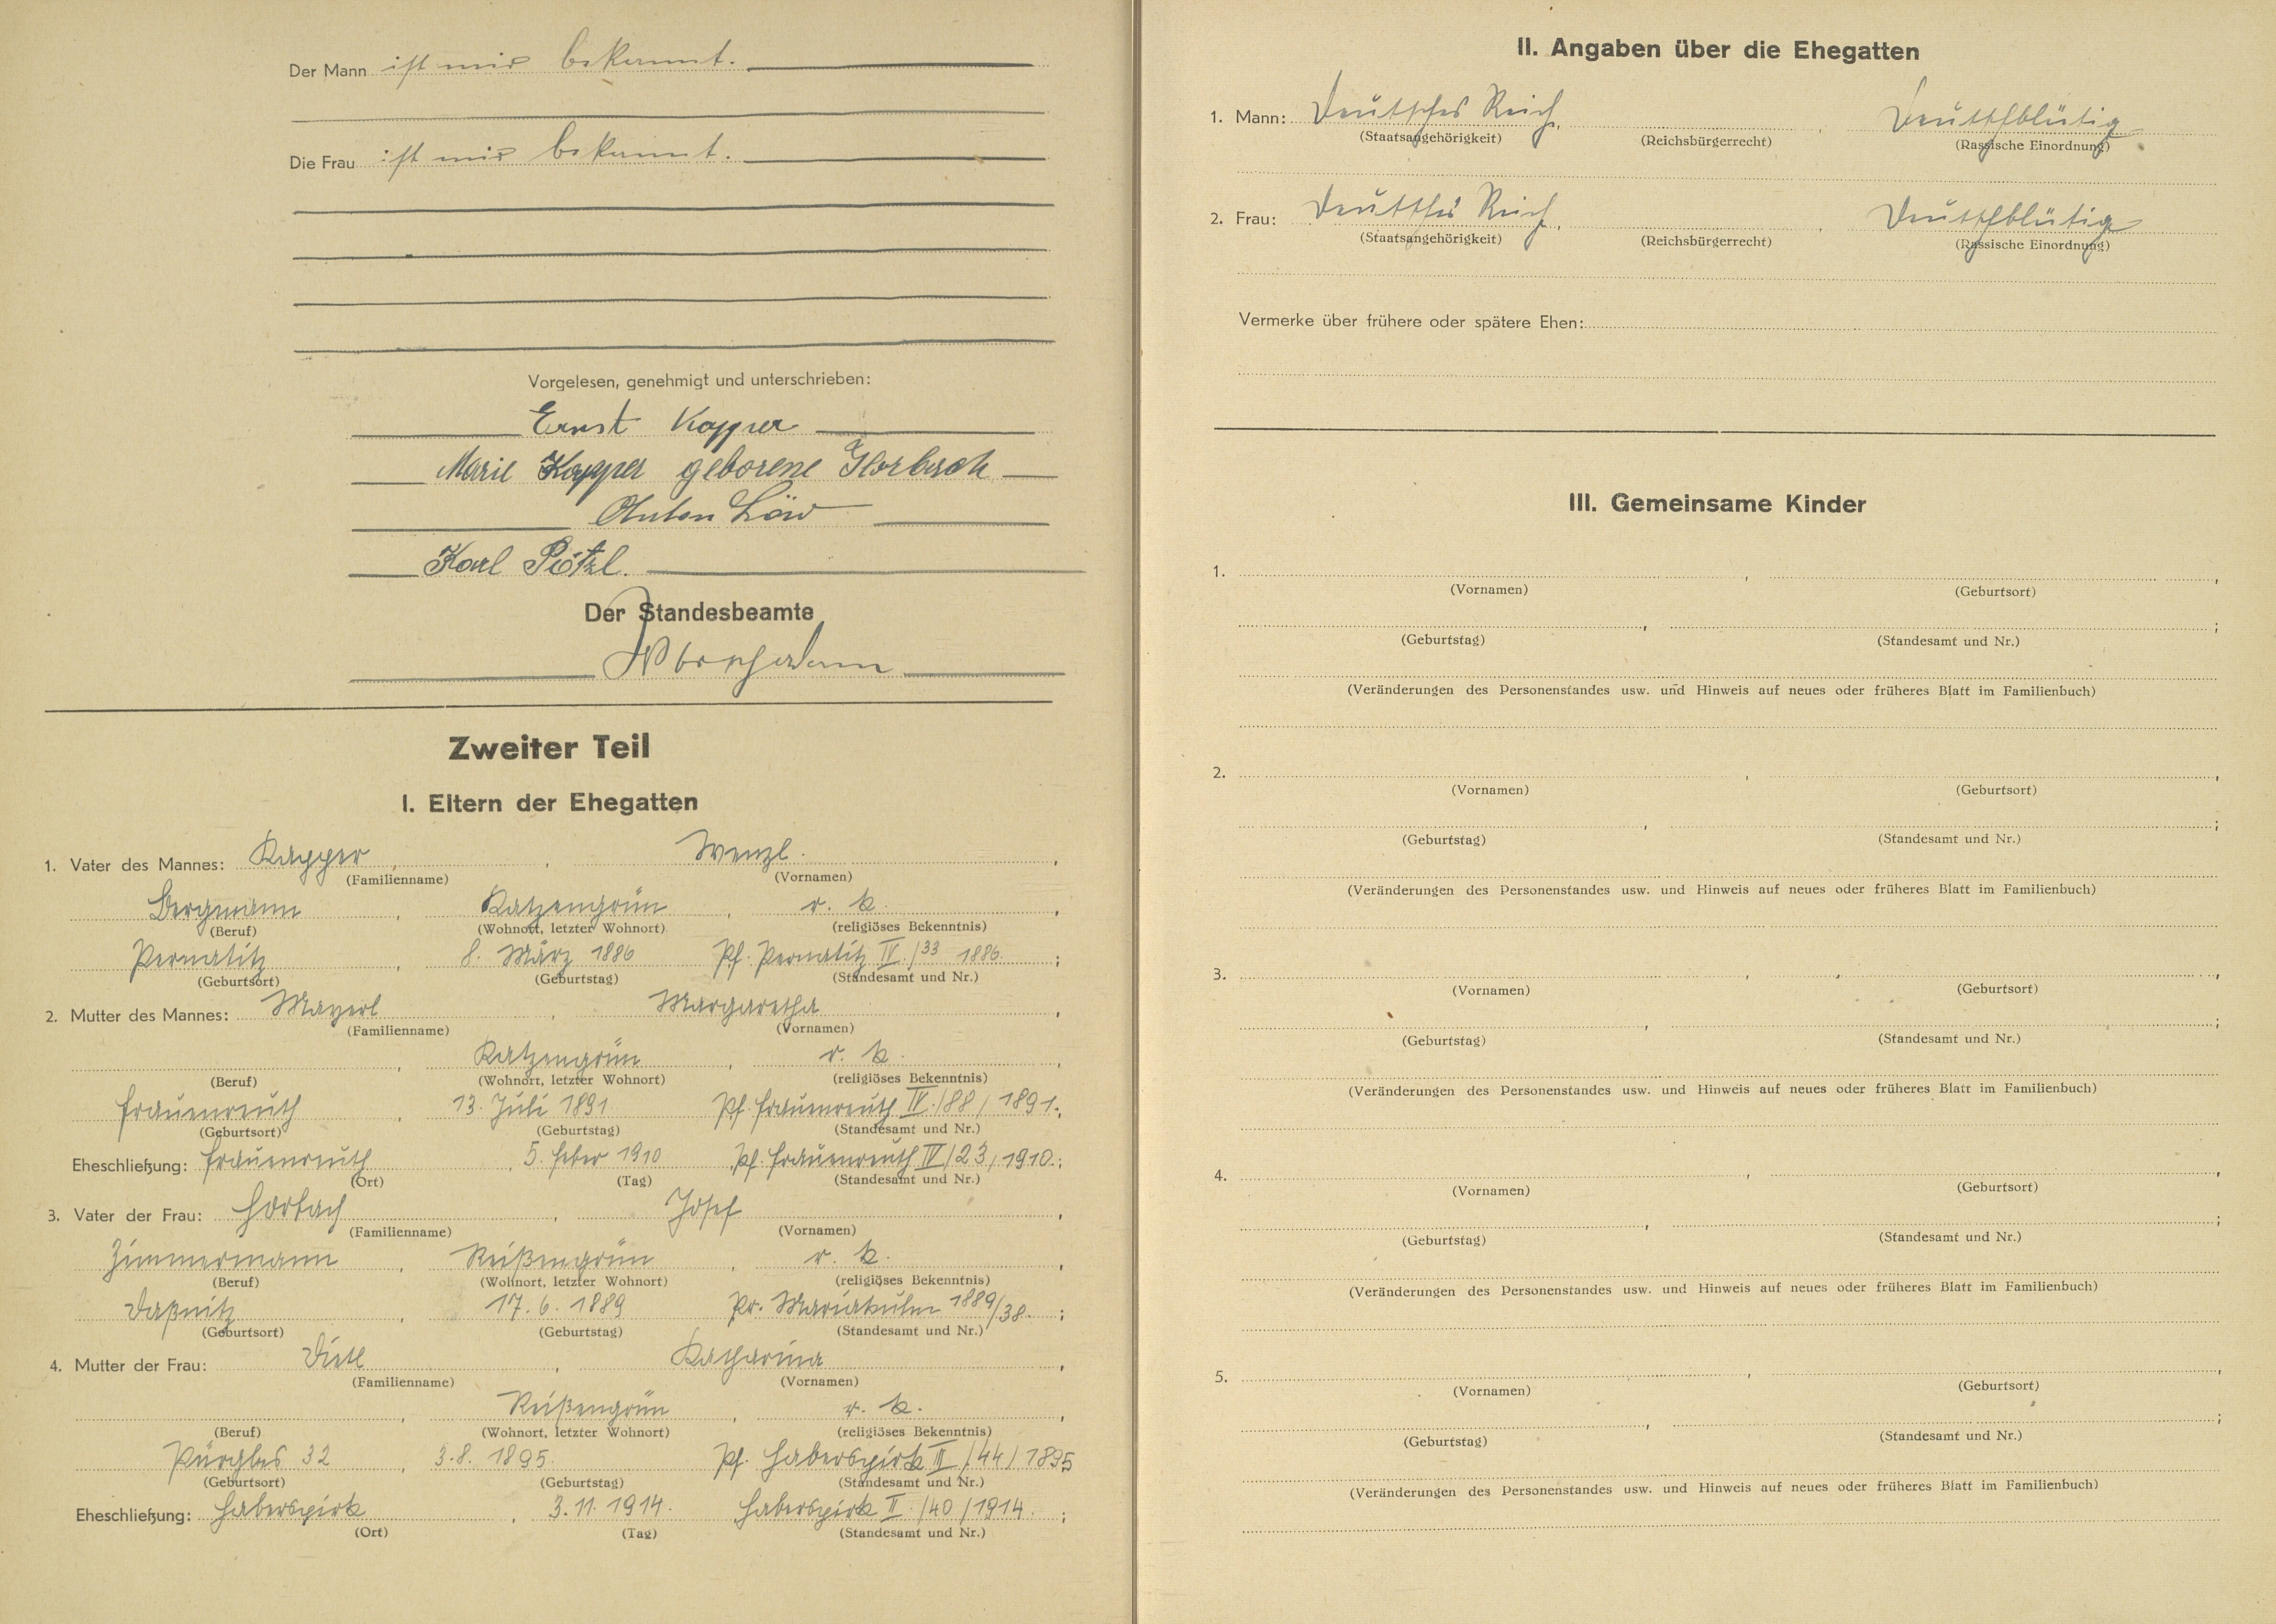 Der Mann ist mir bekannt.
Die Frau ist mir bekannt.
Vorgelesen, genehmigt und unterschrieben:
Ernst Kapper
Marie Kapper geborene Horbach
Anton Löw
Karl Pötzl.
Der Standesbeamte
Zweiter Teil
I. Eltern der Ehegatten
1. Vater des Mannes: Kapper, Wenzl.,
(Familienname) (Vornamen)
Bergmann, Katzengrün, r. k.,
(Beruf) (Wohnort, letzter Wohnort) (religiöses Bekenntnis)
Pernatitz, 8. März 1886 Pf. Pernatitz IV./33 1886.;
(Geburtsort) (Geburtstag) (Standesamt und Nr.)
2. Mutter des Mannes: Mayerl, Margaretha,
(Familienname) (Vornamen)
, Katzengrün, r. k.,
(Beruf) (Wohnort, letzter Wohnort) (religiöses Bekenntnis)
Frauenreuth, 13. Juli 1891 Pf. Frauenreuth IV./88/1891.;
(Geburtsort) (Geburtstag) (Standesamt und Nr.)
Eheschließung: Frauenreuth, 5. Feber 1910 Pf. Frauenreuth IV/23/1910.;
(Ort) (Tag) (Standesamt und Nr.)
3. Vater der Frau: Horbach, Josef,
(Familienname) (Vornamen)
Zimmermann, Reißengrün, r. k.,
(Beruf) (Wohnort, letzter Wohnort) (religiöses Bekenntnis)
Daßnitz, 17. 6. 1889 Pf. Mariakulm 1889/38.;
(Geburtsort) (Geburtstag) (Standesamt und Nr.)
4. Mutter der Frau: Dietl, Katharina,
(Familienname) (Vornamen)
, Reißengrün, r. k.,
(Beruf) (Wohnort, letzter Wohnort) (religiöses Bekenntnis)
Pürgles 32, 3. 8. 1895. Pf. Haberspirk II/44/1895
(Geburtsort) (Geburtstag) (Standesamt und Nr.)
Eheschließung: Haberspirk, 3. 11. 1914. Haberspirk II./40/1914.;
(Ort) (Tag) (Standesamt und Nr.)
II. Angaben über die Ehegatten
1. Mann: Deutsches Reich, , Deutschblütig
(Staatsangehörigkeit) (Reichsbürgerrecht) (Rassische Einordnung)
2. Frau: Deutsches Reich, , Deutschblütig
(Staatsangehörigkeit) (Reichsbürgerrecht) (Rassische Einordnung)
Vermerke über frühere oder spätere Ehen:
III. Gemeinsame Kinder
1. , ,
(Vornamen) (Geburtsort)
, ;
(Geburtstag) (Standesamt und Nr.)
(Veränderungen des Personenstandes usw. und Hinweis auf neues oder früheres Blatt im Familienbuch)
2. , ,
(Vornamen) (Geburtsort)
, ;
(Geburtstag) (Standesamt und Nr.)
(Veränderungen des Personenstandes usw. und Hinweis auf neues oder früheres Blatt im Familienbuch)
3. , ,
(Vornamen) (Geburtsort)
, ;
(Geburtstag) (Standesamt und Nr.)
(Veränderungen des Personenstandes usw. und Hinweis auf neues oder früheres Blatt im Familienbuch)
4. , ,
(Vornamen) (Geburtsort)
, ;
(Geburtstag) (Standesamt und Nr.)
(Veränderungen des Personenstandes usw. und Hinweis auf neues oder früheres Blatt im Familienbuch)
5. , ,
(Vornamen) (Geburtsort)
, ;
(Geburtstag) (Standesamt und Nr.)
(Veränderungen des Personenstandes usw. und Hinweis auf neues oder früheres Blatt im Familienbuch)